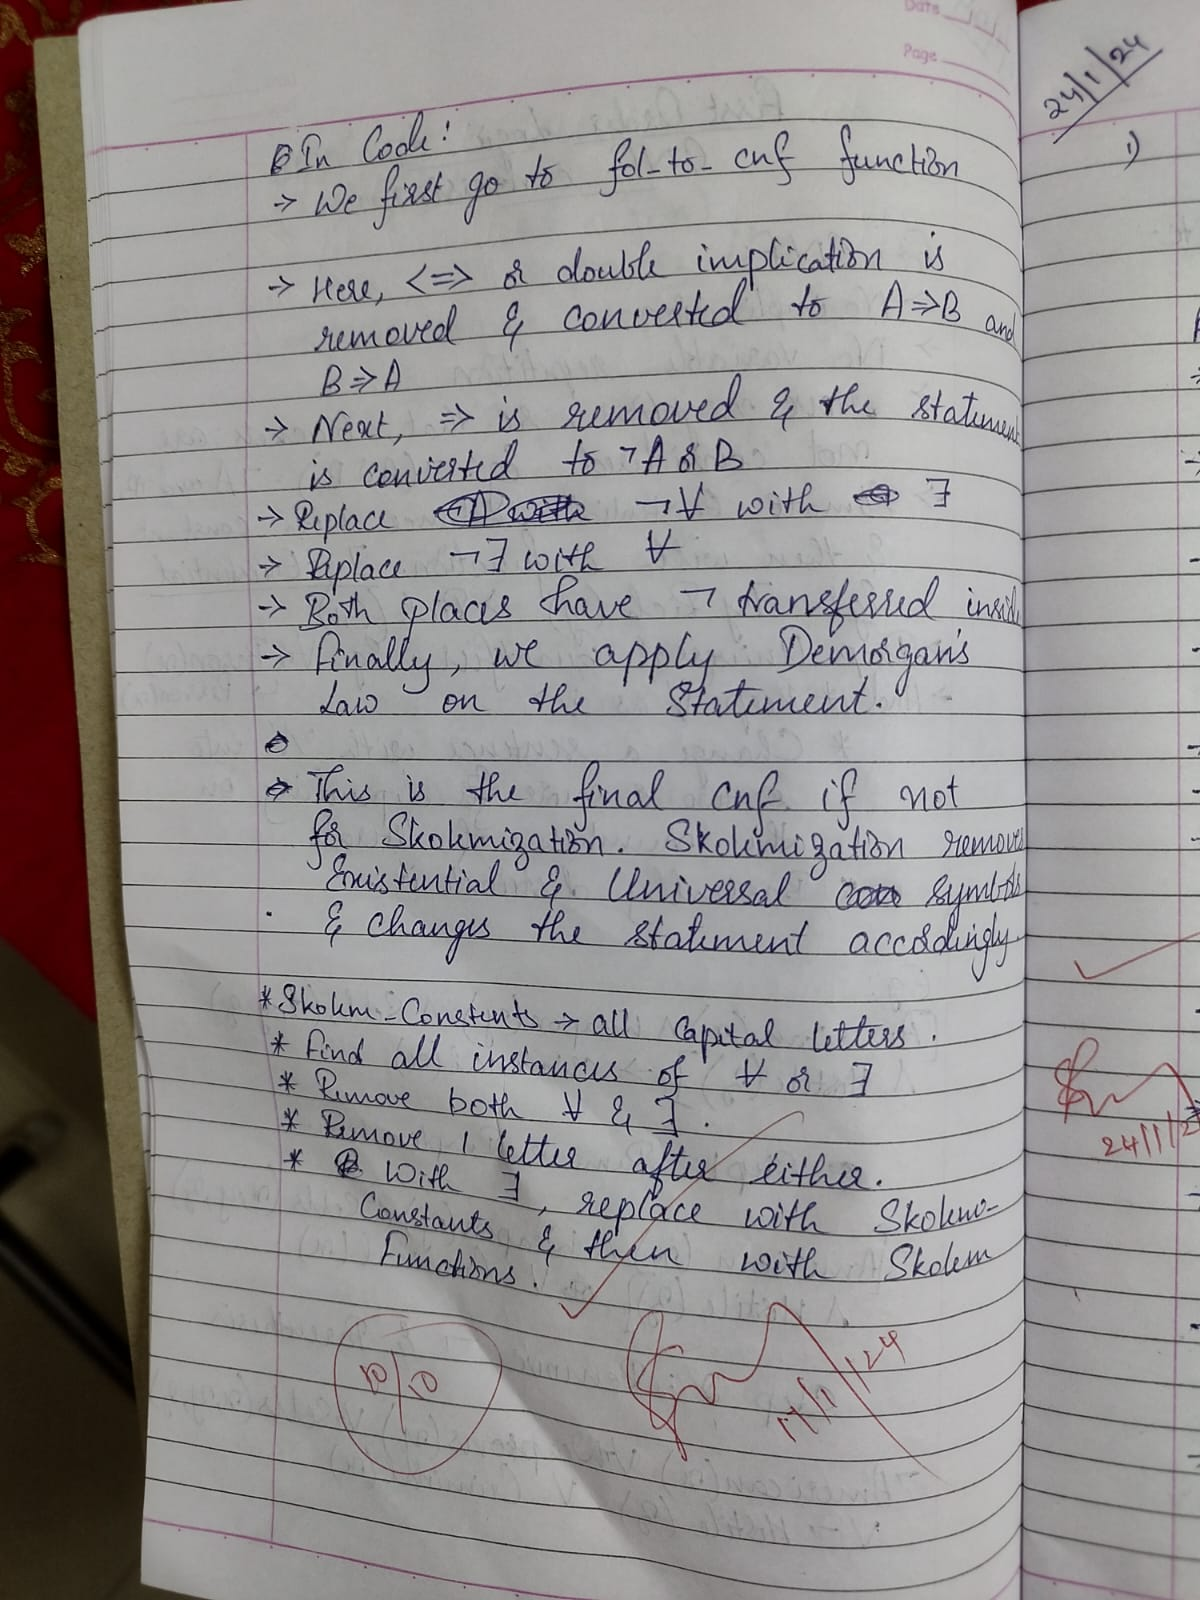 Date
Page
In Code:
→ We first go to fol-to-cnf function
→ Here, <=> or double implication is
removed & converted to A⇒B and
B⇒A
→ Next, ⇒ is removed & the statement
is converted to ¬A or B
→ Replace ¬∀ with ∃
→ Replace ¬∃ with ∀
→ Both places have ¬ transferred inside
→ Finally, we apply Demorgan's
Law on the Statement.
→ This is the final cnf if not
for Skolemization. Skolemization removes
Existential & Universal symbols
& changes the statement accordingly.
* Skolem-Constents → all Capital letters.
* Find all instances of ∀ or ∃
* Remove both ∀ & ∃.
* Remove 1 letter after either.
* With ∃, replace with Skolem-
Constants & then with Skolem
Functions.
10/10
17/1/24
24/1/24
1)
24/1/24